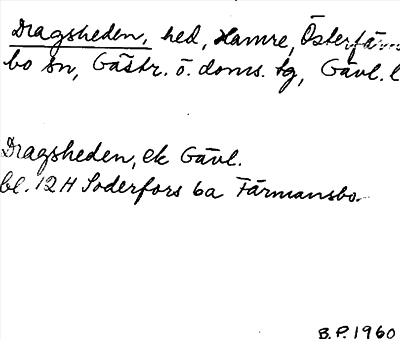 Dragsheden, hed, Hamre, Österfärne
bo sn, Gästr. ö. doms. tg, Gävl. l
Dragsheden, ek Gävl.
bl. 12 H Söderfors 6a Färmansbo.
B.P. 1960